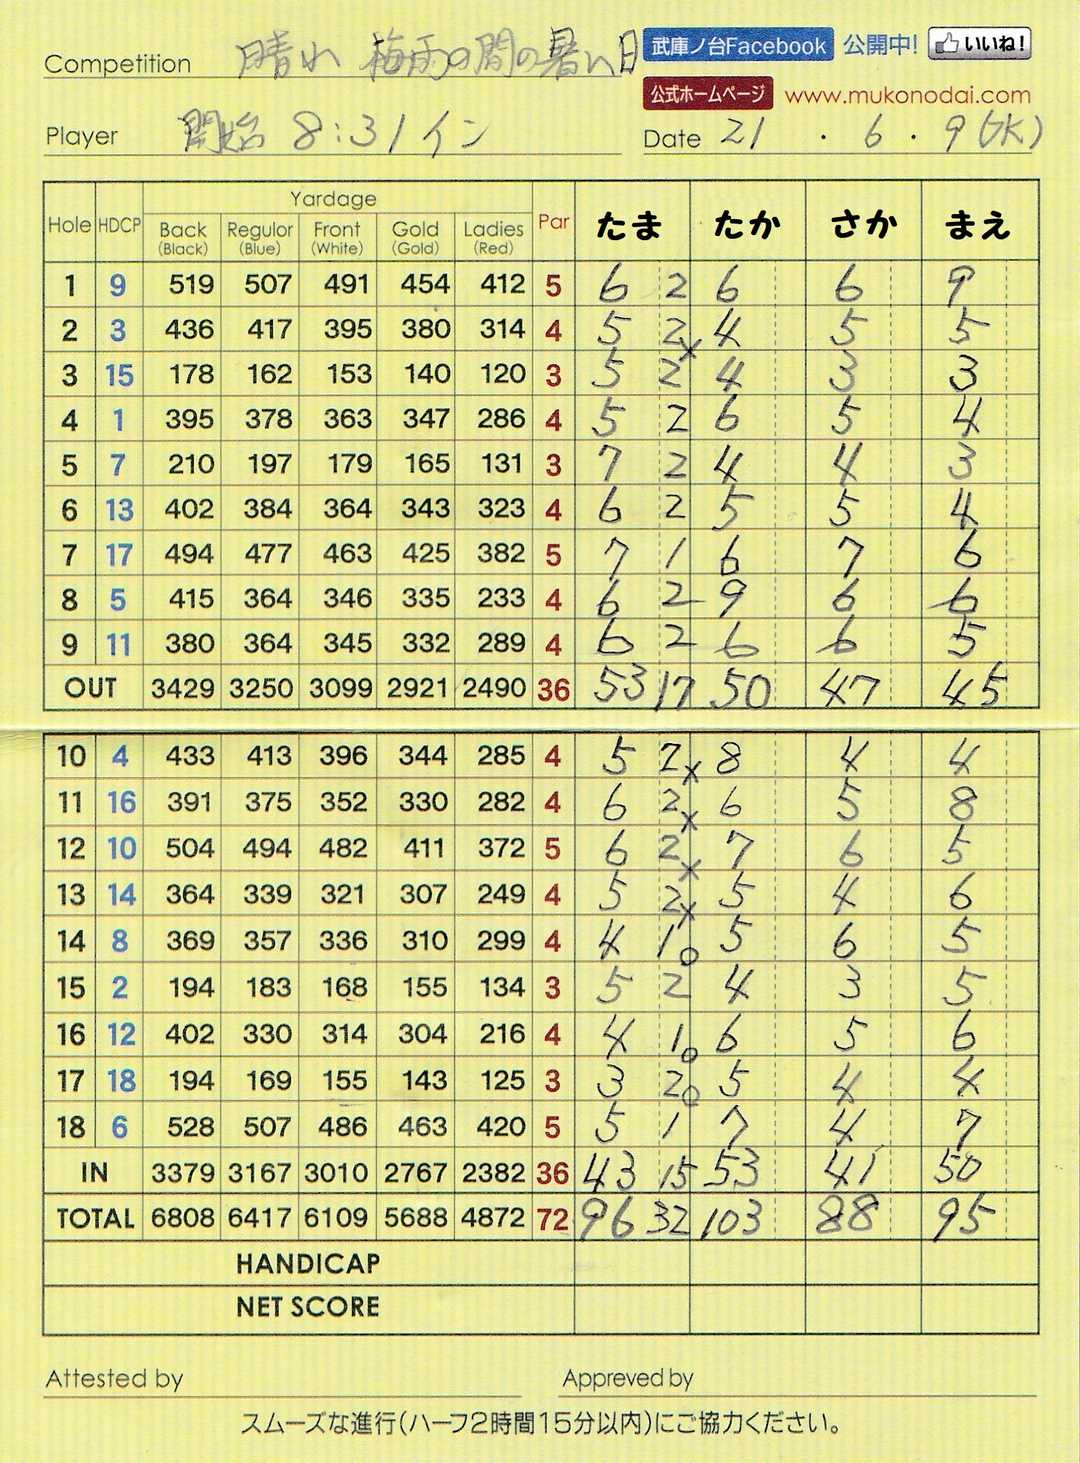 Competition 晴れ 梅雨の間の暑い日 武庫ノ台Facebook 公開中! いいね!
公式ホームページ www.mukonodai.com
Player 開始 8:31 イン Date 21 ・ 6 ・ 9 (水)
Hole HDCP Yardage Par たま たか さか まえ
Back Regulor Front Gold Ladies
(Black) (Blue) (White) (Gold) (Red)
1 9 519 507 491 454 412 5 6 2 6 6 9
2 3 436 417 395 380 314 4 5 2 x 4 5 5
3 15 178 162 153 140 120 3 5 2 4 3 3
4 1 395 378 363 347 286 4 5 2 6 5 4
5 7 210 197 179 165 131 3 7 2 4 4 3
6 13 402 384 364 343 323 4 6 2 5 5 4
7 17 494 477 463 425 382 5 7 1 6 7 6
8 5 415 364 346 335 233 4 6 2 9 6 6
9 11 380 364 345 332 289 4 6 2 6 6 5
OUT 3429 3250 3099 2921 2490 36 53 17 50 47 45
10 4 433 413 396 344 285 4 5 2 x 8 4 4
11 16 391 375 352 330 282 4 6 2 x 6 5 8
12 10 504 494 482 411 372 5 6 2 x 7 6 5
13 14 364 339 321 307 249 4 5 2 x 5 4 6
14 8 369 357 336 310 299 4 4 1 o 5 6 5
15 2 194 183 168 155 134 3 5 2 4 3 5
16 12 402 330 314 304 216 4 4 1 o 6 5 6
17 18 194 169 155 143 125 3 3 2 o 5 4 4
18 6 528 507 486 463 420 5 5 1 7 4 7
IN 3379 3167 3010 2767 2382 36 43 15 53 41 50
TOTAL 6808 6417 6109 5688 4872 72 96 32 103 88 95
HANDICAP
NET SCORE
Attested by Appreved by
スムーズな進行(ハーフ2時間15分以内)にご協力ください。